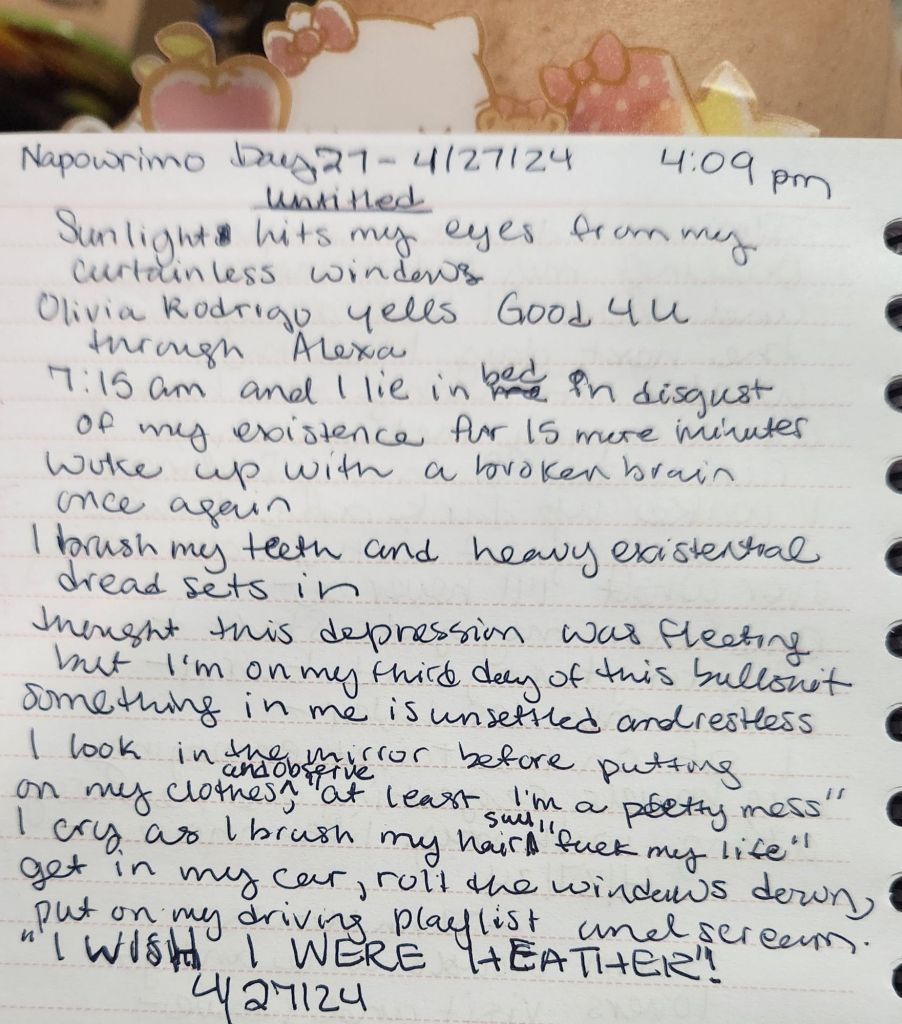 Napowrimo Day 27 - 4/27/24 4:09 pm
Untitled
Sunlight hits my eyes from my
curtainless windows
Olivia Rodrigo yells Good 4 U
through Alexa
7:15 am and I lie in bed in disgust
of my existence for 15 more minutes
Woke up with a broken brain
once again
I brush my teeth and heavy existential
dread sets in
thought this depression was fleeting
but I'm on my third day of this bullshit
something in me is unsettled and restless
I look in the mirror before putting
on my clothes, and observe "at least I'm a pretty mess"
I cry as I brush my hair "fuck my life"
get in my car, roll the windows down,
put on my driving playlist and scream.
"I WISH I WERE HEATHER"!
4/27/24